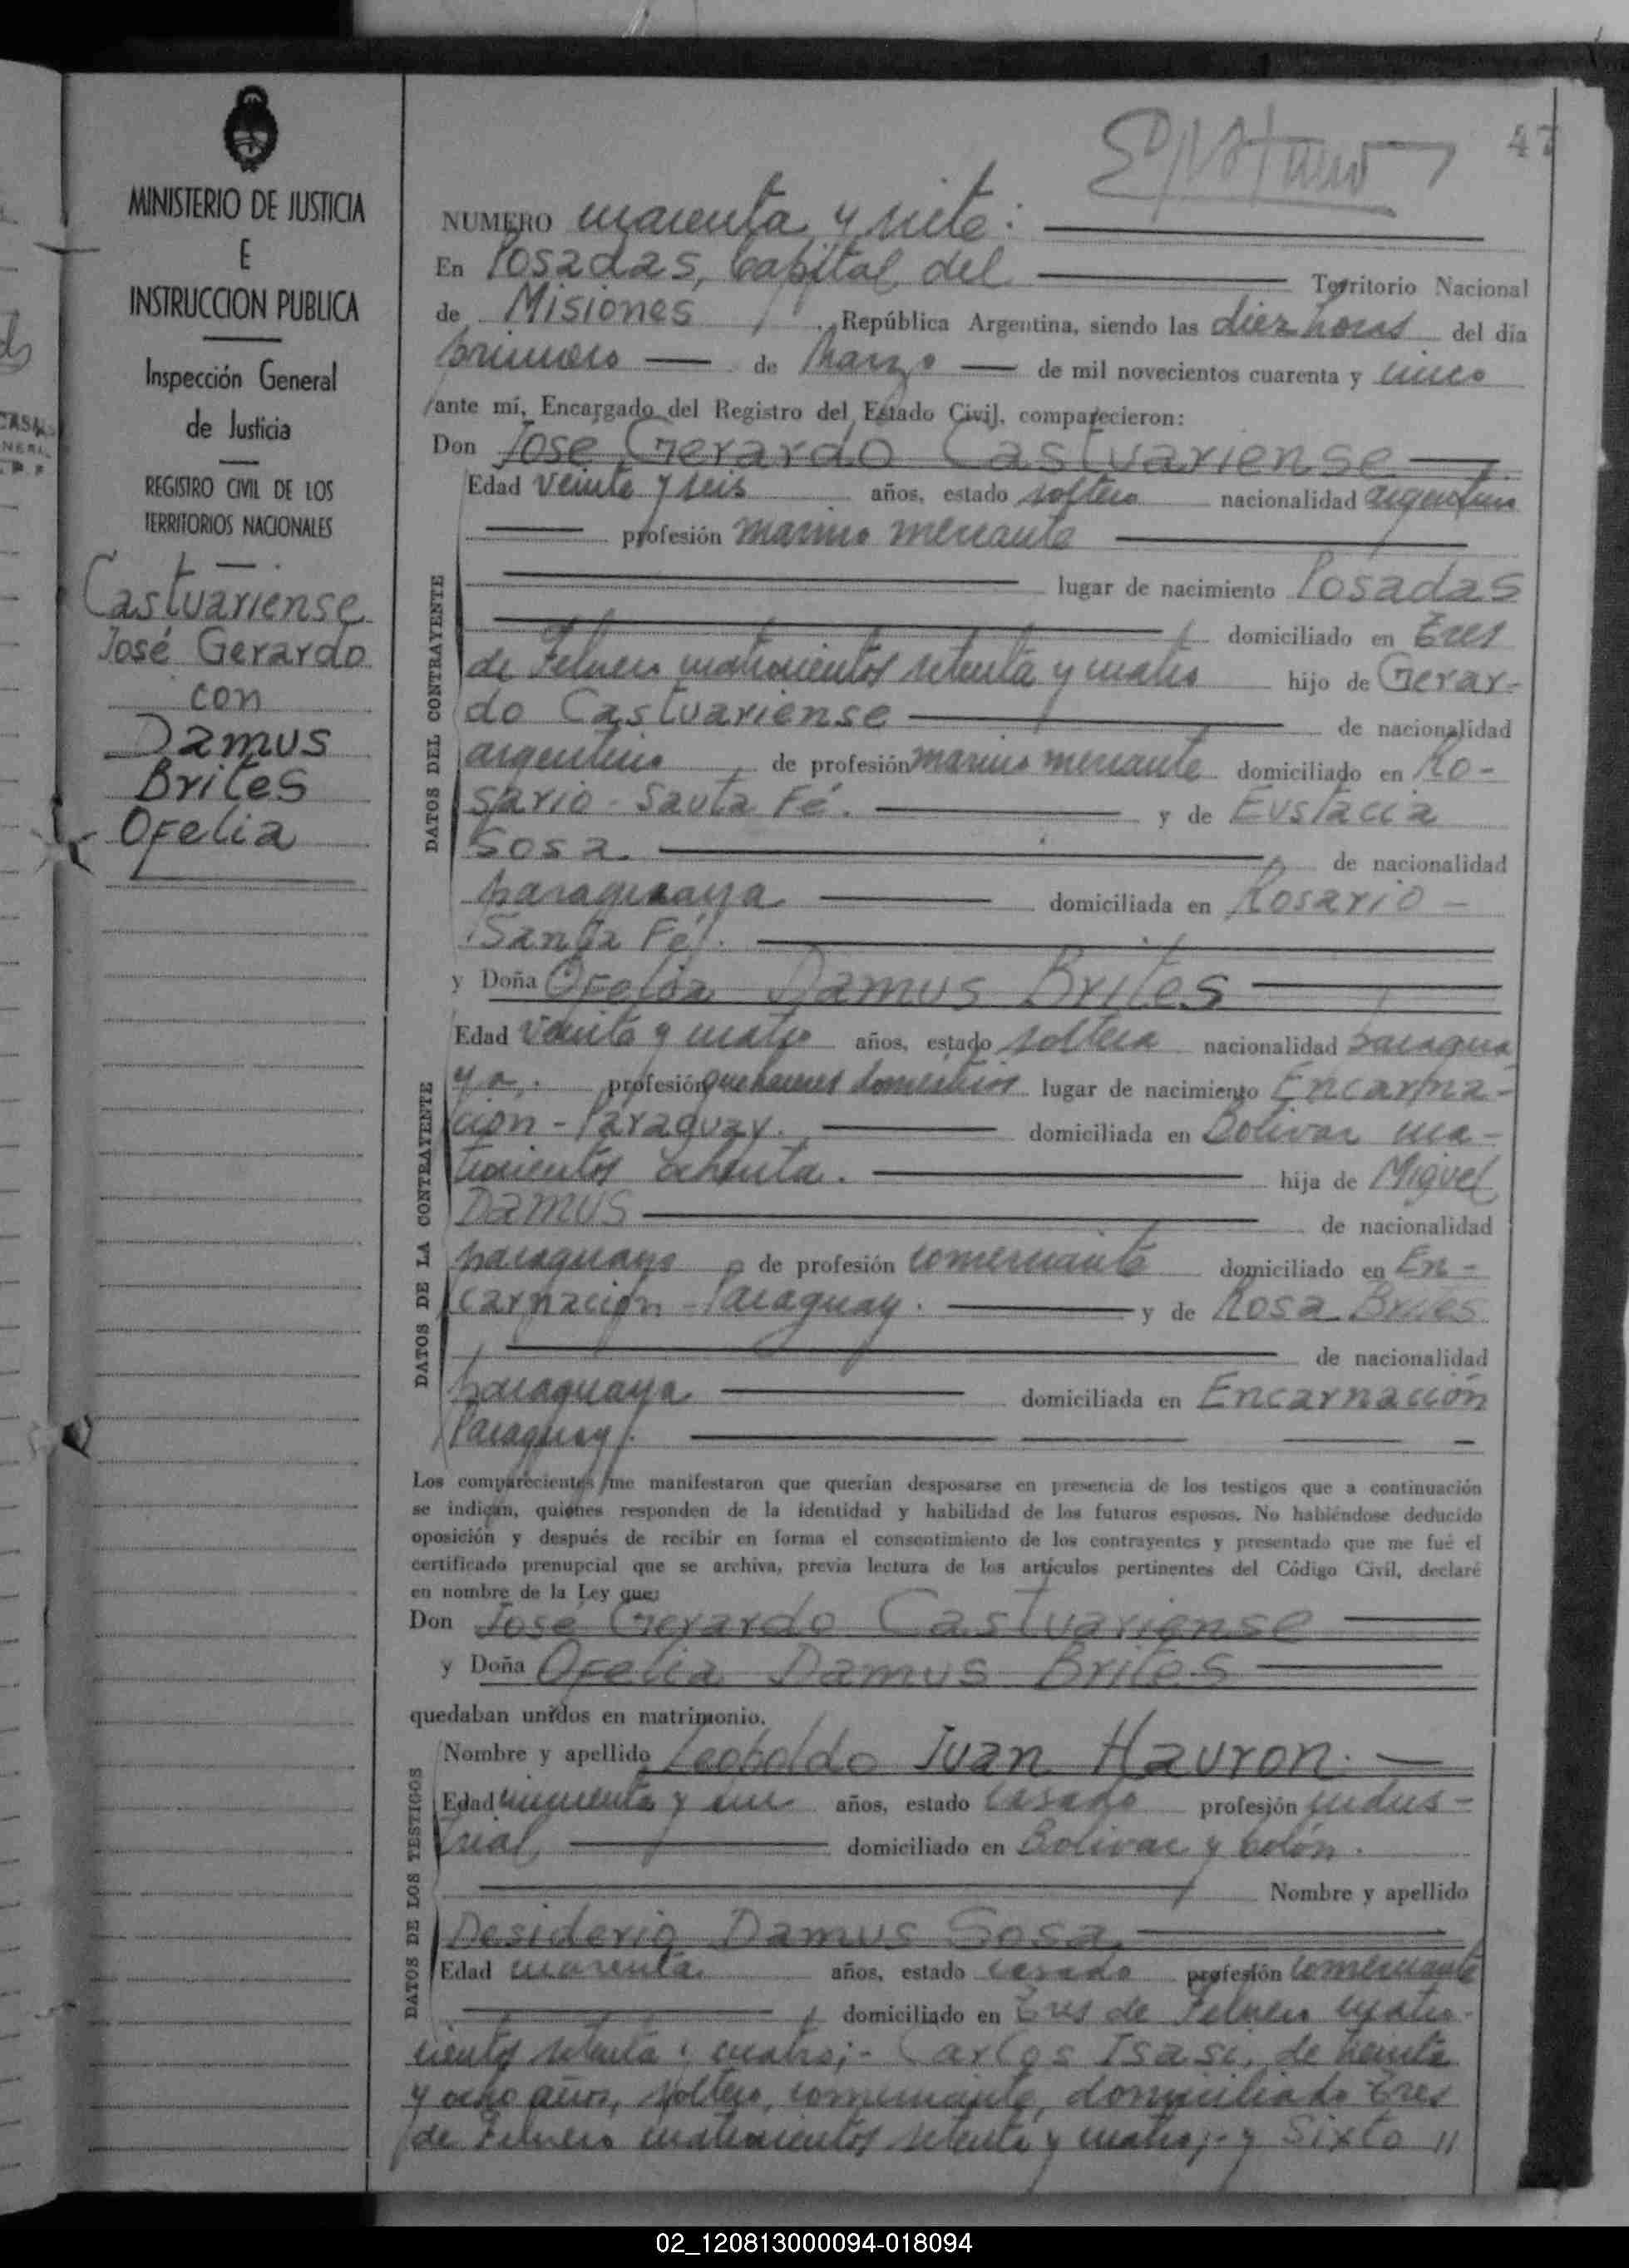 47
MINISTERIO DE JUSTICIA
E
INSTRUCCION PUBLICA
Inspección General
de Justicia
REGISTRO CIVIL DE LOS
TERRITORIOS NACIONALES
Castuariense
José Gerardo
con
Damus
Brites
Ofelia
NUMERO cuarenta y siete:
En Posadas, Capital del Territorio Nacional
de Misiones, República Argentina, siendo las diez horas del día
primero de Marzo de mil novecientos cuarenta y cinco
ante mí, Encargado del Registro del Estado Civil, comparecieron:
Don José Gerardo Castuariense
Edad veinte y seis años, estado soltero nacionalidad argentino
profesión marino mercante
lugar de nacimiento Posadas
domiciliado en Tres
de Febrero cuatrocientos setenta y cuatro hijo de Gerar-
do Castuariense de nacionalidad
argentino de profesión marino mercante domiciliado en Ro-
sario - Santa Fé. y de Eustacia
Sosa. de nacionalidad
paraguaya domiciliada en Rosario -
Santa Fé.
y Doña Ofelia Damus Brites
Edad veinte y cuatro años, estado soltera nacionalidad paragua
ya. profesión quehaceres domésticos lugar de nacimiento Encarna-
ción - Paraguay. domiciliada en Bolivar cua-
trocientos ochenta. hija de Miguel
Damus de nacionalidad
paraguayo de profesión comerciante domiciliado en En-
carnación - Paraguay. y de Rosa Brites
de nacionalidad
paraguaya domiciliada en Encarnación
Paraguay.
Los comparecientes me manifestaron que querían desposarse en presencia de los testigos que a continuación
se indican, quiénes responden de la identidad y habilidad de los futuros esposos. No habiéndose deducido
oposición y después de recibir en forma el consentimiento de los contrayentes y presentado que me fué el
certificado prenupcial que se archiva, previa lectura de los artículos pertinentes del Código Civil, declaré
en nombre de la Ley que:
Don José Gerardo Castuariense
y Doña Ofelia Damus Brites
quedaban unidos en matrimonio.
Nombre y apellido Leopoldo Juan Hauron.
Edad cincuenta y un años, estado casado profesión indus-
trial domiciliado en Bolivar y Colón.
Nombre y apellido
Desiderio Damus Sosa
Edad cuarenta años, estado casado profesión comerciante
domiciliado en Tres de Febrero cuatro-
cientos setenta y cuatro;- Carlos Isasi, de treinta
y ocho años, soltero, comerciante, domiciliado Tres
de Febrero cuatrocientos setenta y cuatro;- y Sixto //
DATOS DEL CONTRAYENTE
DATOS DE LA CONTRAYENTE
DATOS DE LOS TESTIGOS
02_120813000094-018094